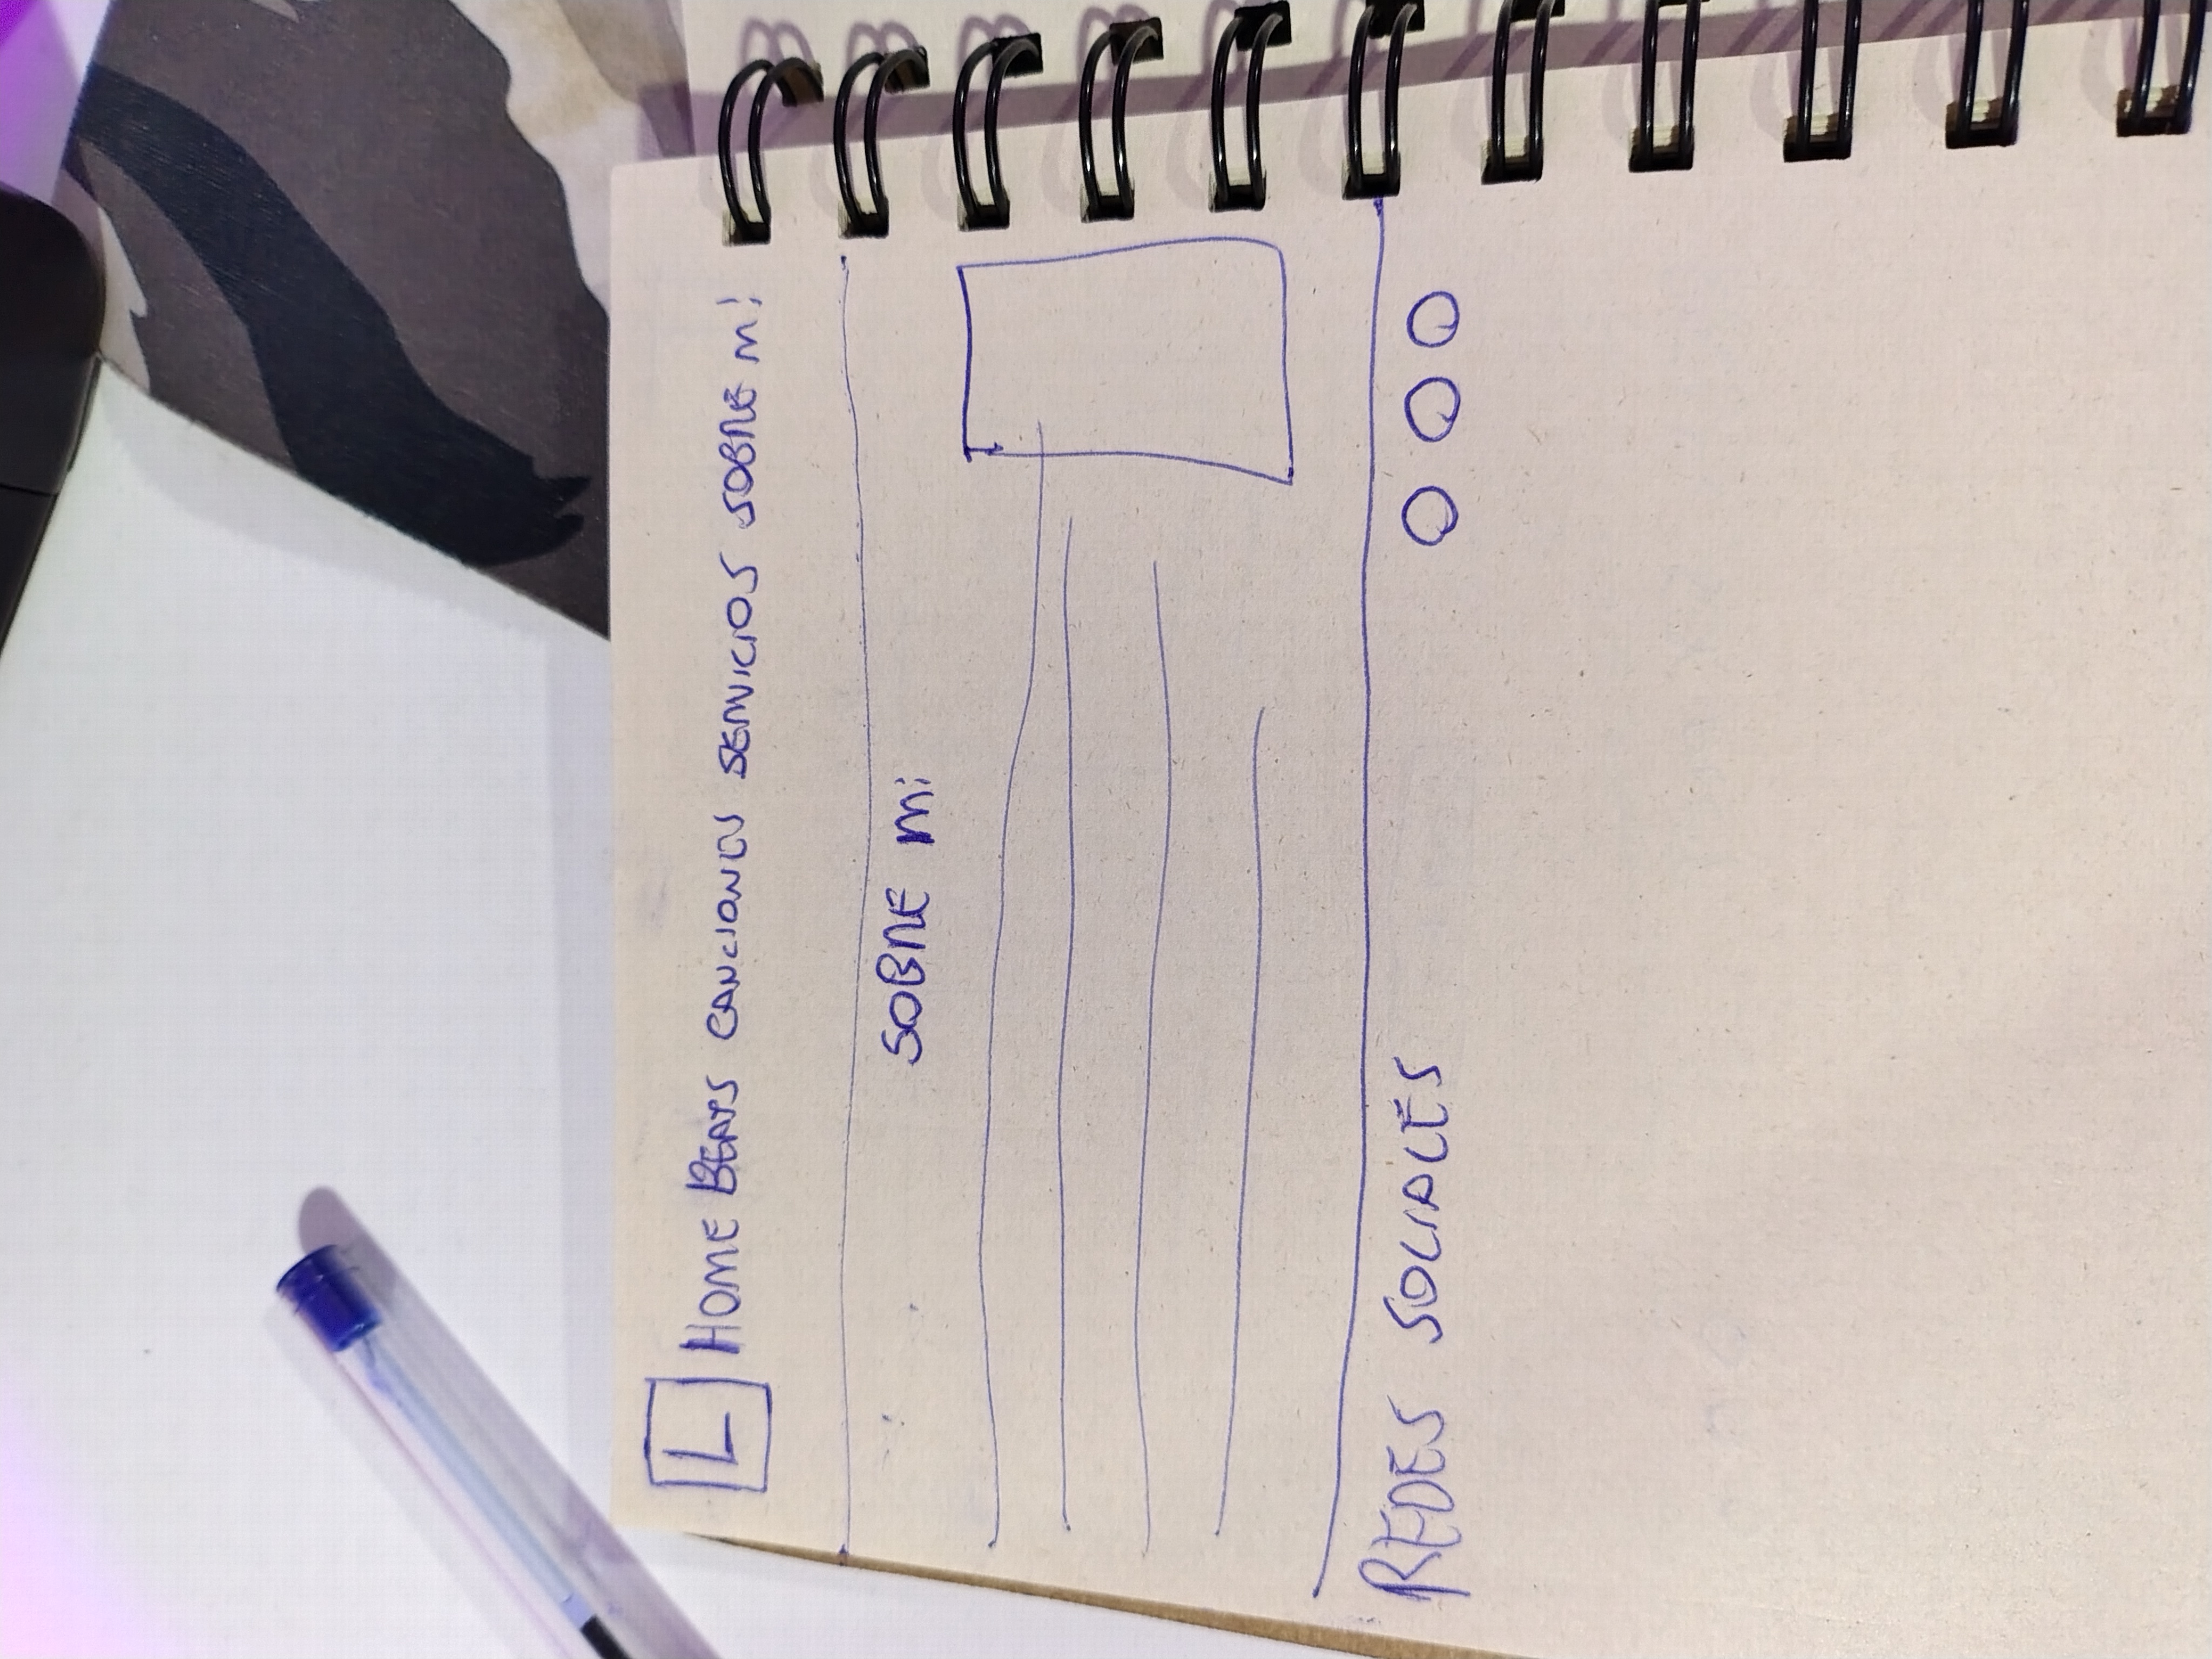 L HOME BEATS CANCIONES SERVICIOS SOBRE mi
SOBRE mi
REDES SOCIALES